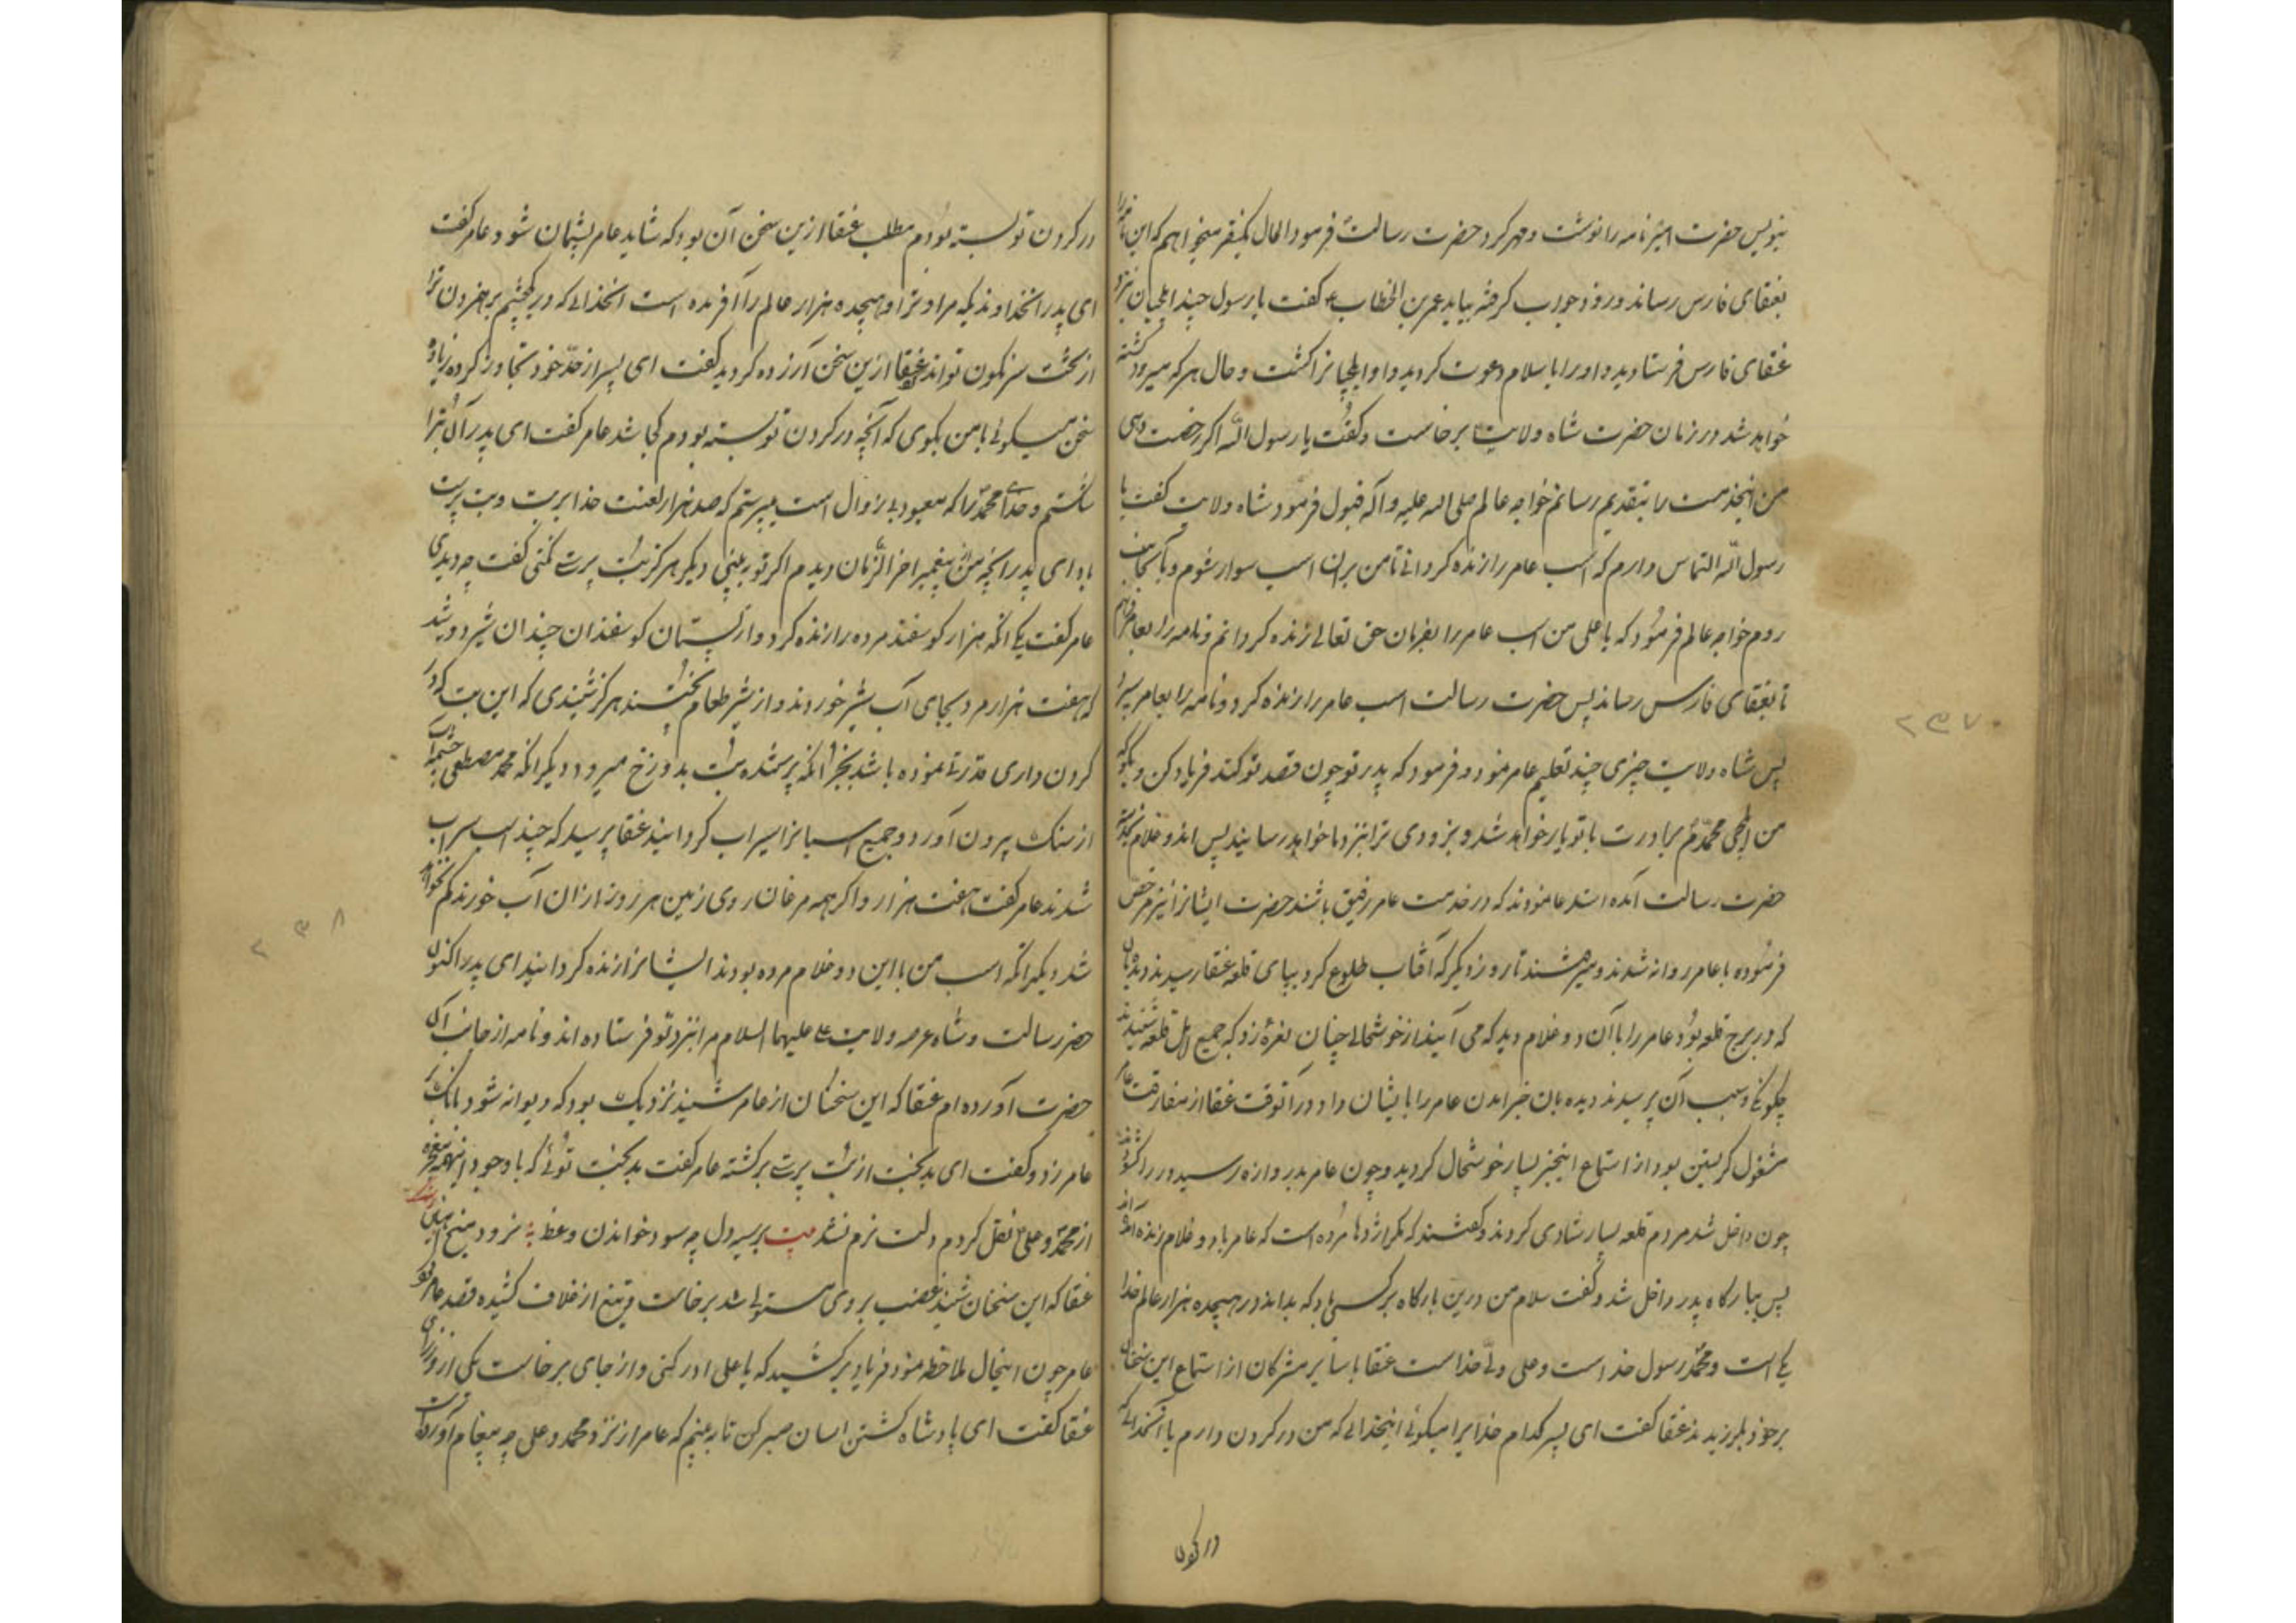 بنویس حضرت امیر نامه را نوشت و مهر کرد حضرت رسالت فرمود الحال یکنفر میخواهم که این نامه را
بعنقای فارس رساند و زود جواب گرفته بیاید عمر بن الخطاب گفت یا رسول چند ایلچیان نزد
عنقای فارس فرستادید و اورا باسلام دعوت کردید و او ایلچیانرا کشت و حال هر که میرود کشته
خواهد شد در زمان حضرت شاه ولایت برخاست و گفت یا رسول الله اگر رخصت دهی
من اینخدمت را بتقدیم رسانم خواجه عالم صلی الله علیه و آله قبول فرمود شاه ولایت گفت یا
رسول الله التماس دارم که اسب عامر را زنده گردانی تا من بران اسب سوار شوم و بآنجانب
روم خواجه عالم فرمود که یا علی من اسب عامر را بفرمان حق تعالی زنده گردانم و نامه را بعامر دهم
تا بعنقای فارس رساند پس حضرت رسالت اسب عامر را زنده کرد و نامه را بعامر سپرد
پس شاه ولایت چیزی چند تعلیم عامر نمود و فرمود که پدر تو چون قصد تو کند فریاد کن و بگو که
من ایلچی محمدم برادرت با تو یار خواهد شد و بزودی ترا بنزد ما خواهد رسانید پس اندو غلام
حضرت رسالت آمده استدعا نمودند که در خدمت عامر رفیق باشند حضرت ایشانرا نیز مرخص
فرموده با عامر روانه شدند و میرفتند تا روز دیگر که آفتاب طلوع کرد بپای قلعه عنقا رسیدند دیده بان
که در برج قلعه بود عامر را با آن دو غلام دید که می آیند از خوشحالی چنان نعره زد که جمیع اهل قلعه شنیدند
چگونگی و سبب آن پرسیدند دیده بان خبر امدن عامر را بایشان داد در آنوقت عنقا از مفارقت عامر
مشغول گریستن بود از استماع اینخبر بسیار خوشحال گردید و چون عامر بدروازه رسید در را گشودند
چون داخل شد مردم قلعه بسیار شادی کردند و گفتند که مگر اژدها مرده است که عامر با دو غلام زنده آمده اند
پس ببارگاه پدر داخل شد و گفت سلام من درین بارگاه بر کسی باد که بداند در هیجده هزار عالم خدا
یکی است و محمد رسول خداست و علی ولی خداست عنقا با سایر مشرکان از استماع این سخنان
بر خود بلرزیدند عنقا گفت ای پسر کدام خدایرا میگوئی اینخدائی که من در گردن دارم یا آنخدائی که
در گردن
در گردن تو بسته بودم مطلب عنقا ازین سخن آن بود که شاید عامر پشیمان شود عامر گفت
ای پدر انخداوندیکه مرا و ترا و هیجده هزار عالم را آفریده است انخدائی که در یکچشم برهم زدن ترا
از تخت سرنگون تواند عنقا ازین سخن آزرده گردید گفت ای پسر از حد خود تجاوز کرده زیاده
سخن میگوئی با من بگوی که آنچه در گردن تو بسته بودم کجا شد عامر گفت ای پدر آن بترا
شکستم و خدای محمد را که معبود بی زوال است میپرستم که صد هزار لعنت خدا بر بت و بت پرست
باد ای پدر انچه من از پیغمبر اخر الزمان دیدم اگر تو به بینی دیگر هرگز بت پرستی نکنی گفت چه دیدی
عامر گفت یکی انکه هزار گوسفند مرده را زنده کرد و از پستان گوسفندان چندان شیر دوشید
که هفت هزار مرد بجای آب شیر خوردند و از شیر طعام پختند هرگز شنیدی که این بت که در
گردن داری قدرتی نموده باشد بجز انکه پرستنده بت بدوزخ میرود دیگر انکه محمد مصطفی چشمه آب
از سنگ بیرون آورد و جمیع اسبانرا سیراب گردانید عنقا پرسید که چند اسب سیراب
شدند عامر گفت هفت هزار و اگر همه مرغان روی زمین هر روز ازان آب خورند کم نخواهد
شد دیگر انکه اسب من با این دو غلام مرده بودند ایشانرا زنده گردانید ای پدر اکنون
حضرت رسالت و شاه عرصه ولایت علی علیهما السلام مرا بنزد تو فرستاده اند و نامه از جانب آن
حضرت آورده ام عنقا که این سخنان از عامر شنید نزدیک بود که دیوانه شود بانک بر
عامر زد و گفت ای بدبخت از بت پرستی برگشته عامر گفت بدبخت توئی که با وجود اینهمه معجزه
از محمد و علی نقل کردم دلت نرم نشد بیت بر سیه دل چه سود خواندن وعظ نرود میخ آهنین در سنگ
عنقا که این سخنان شنید غضب بر وی مستولی شد برخاست و تیغ از غلاف کشیده قصد عامر کرد
عامر چون اینحال ملاحظه نمود فریاد برکشید که یا علی ادرکنی و از جای برخاست یکی از وزرای
عنقا گفت ای پادشاه کشتن اسان صبر کن تا به بینم که عامر از نزد محمد و علی چه پیغام آورده است
۲۳۷
۲۳۸